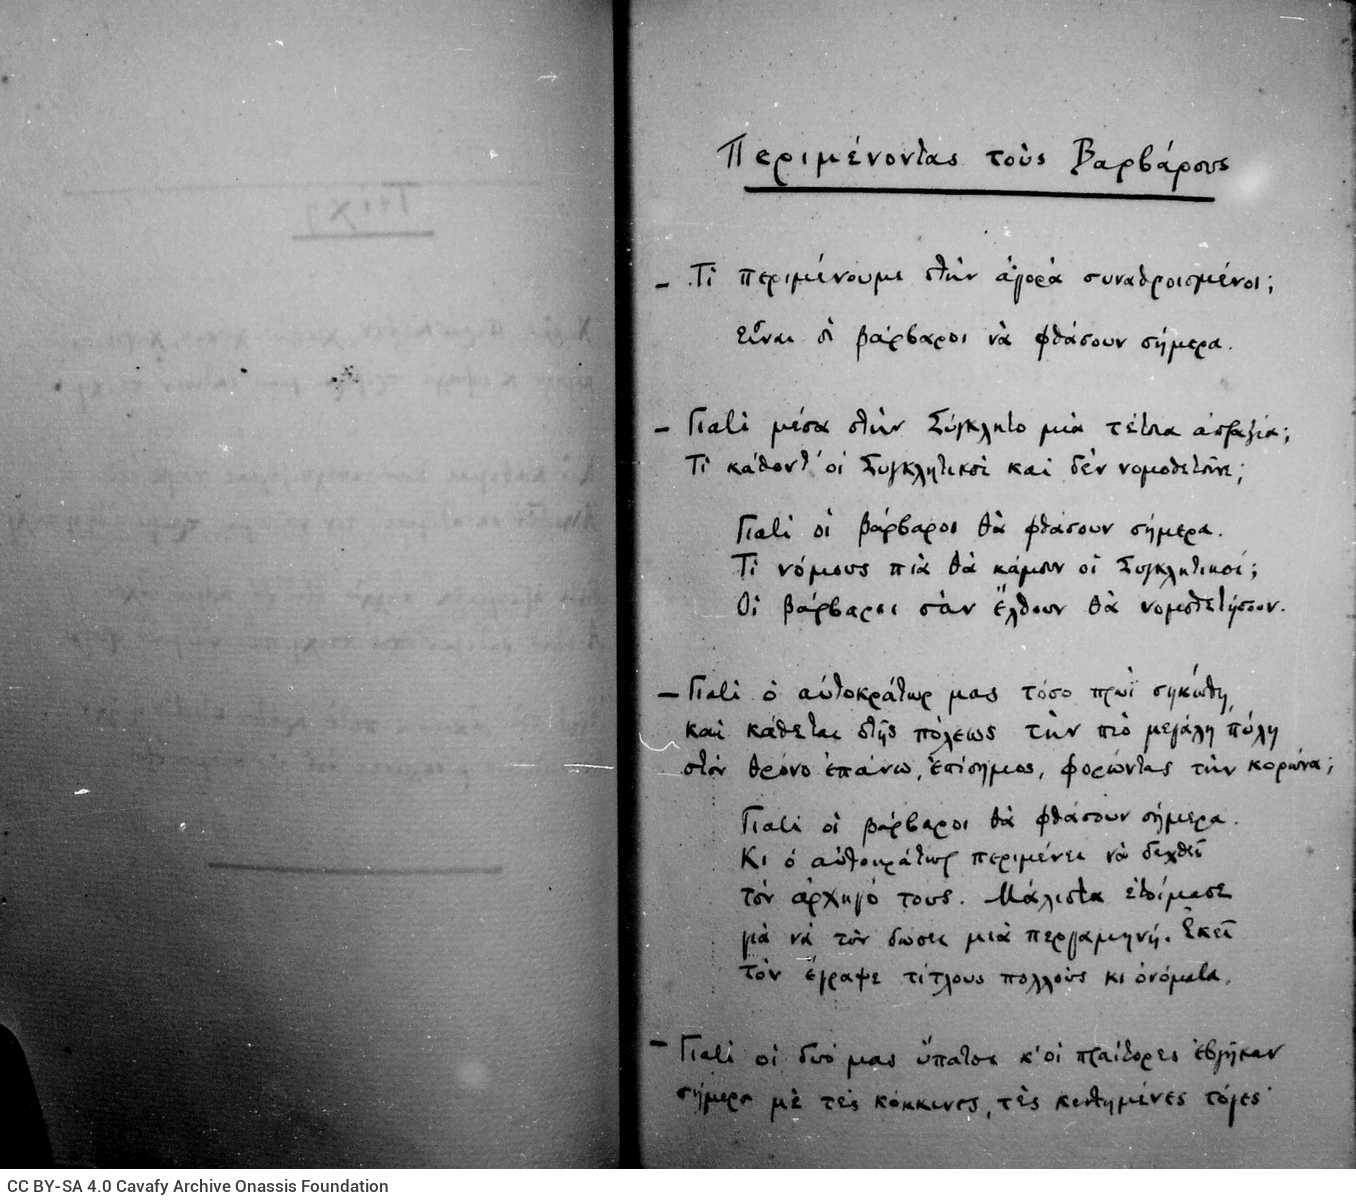 Περιμένοντας τοὺς Βαρβάρους
– Τί περιμένουμε στὴν ἀγορὰ συναθροισμένοι;
Εἶναι οἱ βάρβαροι νὰ φθάσουν σήμερα.
– Γιατὶ μέσα στὴν Σύγκλητο μιὰ τέτοια ἀπραξία;
Τί κάθοντ' οἱ Συγκλητικοὶ καὶ δὲν νομοθετοῦνε;
Γιατὶ οἱ βάρβαροι θὰ φθάσουν σήμερα.
Τί νόμους πιὰ θὰ κάμουν οἱ Συγκλητικοί;
Οἱ βάρβαροι σὰν ἔλθουν θὰ νομοθετήσουν.
– Γιατὶ ὁ αὐτοκράτωρ μας τόσο πρωῒ σηκώθη,
καὶ κάθεται στῆς πόλεως τὴν πιὸ μεγάλη πύλη
στὸν θρόνο ἐπάνω, ἐπίσημος, φορώντας τὴν κορώνα;
Γιατὶ οἱ βάρβαροι θὰ φθάσουν σήμερα.
Κι ὁ αὐτοκράτωρ περιμένει νὰ δεχθεῖ
τὸν ἀρχηγό τους. Μάλιστα ἑτοίμασε
γιὰ νὰ τὸν δώσει μιὰ περγαμηνή. Ἐκεῖ
τὸν ἔγραψε τίτλους πολλοὺς κι ὀνόματα.
– Γιατὶ οἱ δυό μας ὕπατοι κ' οἱ πραίτορες ἐβγῆκαν
σήμερα μὲ τὲς κόκκινες, τὲς κεντημένες τόγες·
CC BY-SA 4.0 Cavafy Archive Onassis Foundation